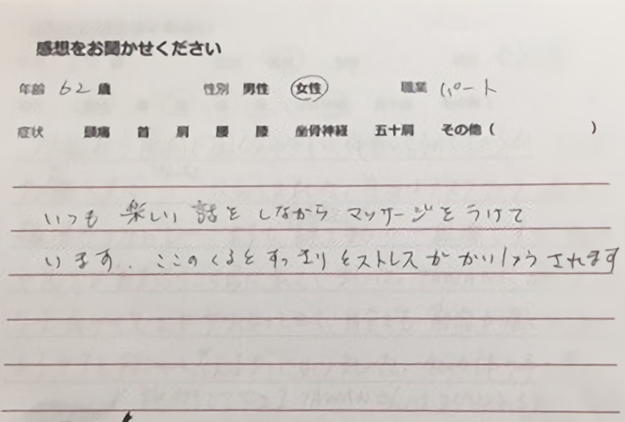 感想をお聞かせください
年齢 62 歳 性別 男性 女性 職業 パート
症状 頭痛 首 肩 腰 膝 坐骨神経 五十肩 その他( )
いつも 楽しい 話を しながら マッサージを うけて
います. ここのくるとすっきりとストレスがかいしょうされます